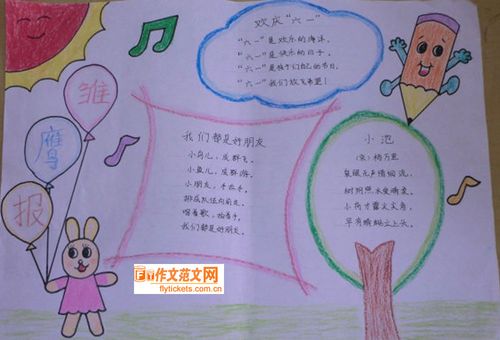 雏
鹰
报
欢庆“六一”
“六一”是欢乐的海洋，
“六一”是快乐的日子，
“六一”是孩子们自己的节日，
“六一”我们放飞希望！
我们都是好朋友
小鸟儿，成群飞，
小鱼儿，成群游，
小朋友，手拉手，
排成队伍向前走。
唱着歌，拍着手，
我们都是好朋友。
小池
（宋）杨万里
泉眼无声惜细流，
树阴照水爱晴柔。
小荷才露尖尖角，
早有蜻蜓立上头。
作文范文网
flytickets.com.cn